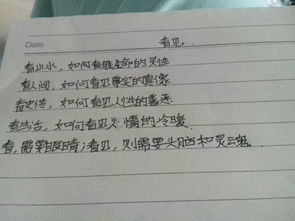 Date
看见.
看山水，如何看见生命的灵性
看人间，如何看见真实的真像
看史传，如何看见人性的善恶
看生活，如何看见人情的冷暖.
看，需要眼睛；看见，则需要头脑和灵云魂.